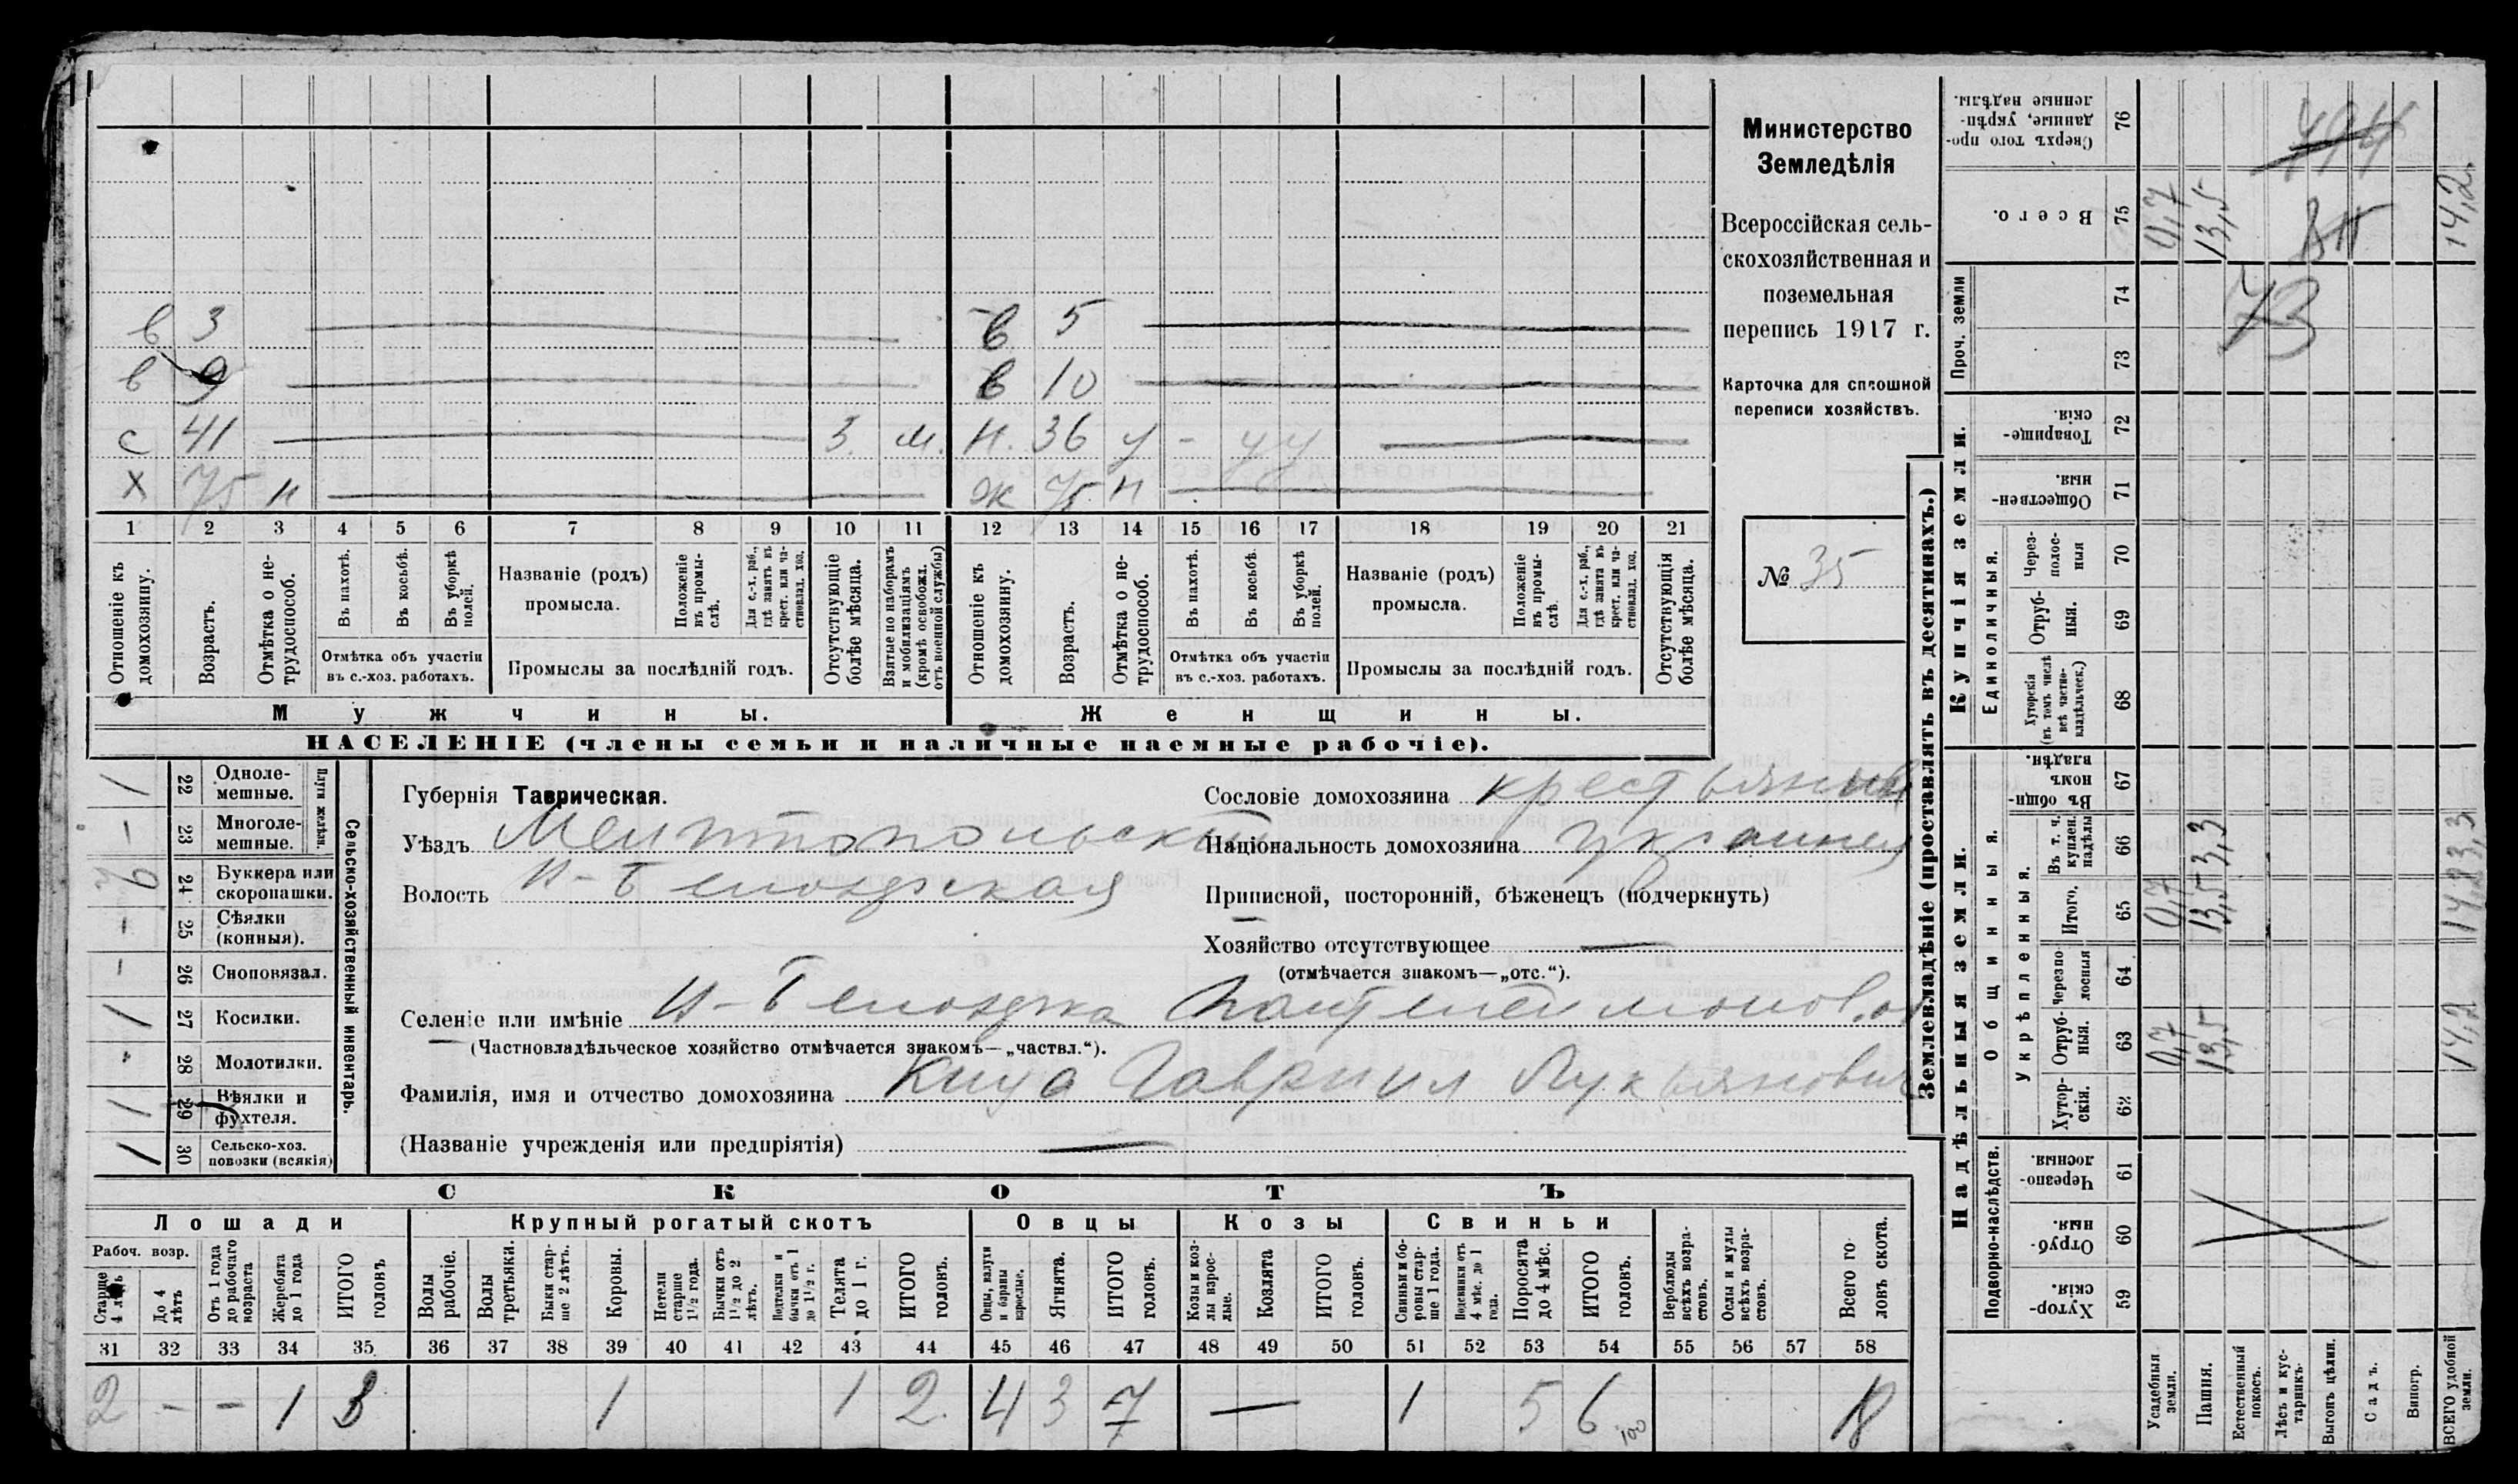 в 3 в 5
в 9 в 10
с 41 3. м. н. 36 у - у у
х 75 н ж 75 н
1 2 3 4 5 6 7 8 9 10 11 12 13 14 15 16 17 18 19 20 21
Отношеніе къ домохозяину.
Возрастъ.
Отмѣтка о не-
трудоспособ.
Въ пахотѣ.
Въ косьбѣ.
Въ уборкѣ полей.
Отмѣтка объ участіи
въ с.-хоз. работахъ.
Названіе (родъ)
промысла.
Положеніе
въ промы-
слѣ.
Для с.-х. раб.,
гдѣ занятъ въ
крест. или ча-
стновлад. хоз.
Промыслы за послѣдній годъ.
Отсутствующіе
болѣе мѣсяца.
Взятые по наборамъ
и мобилизаціямъ
(кромѣ освобожд.
отъ военной службы)
Отношеніе къ
домохозяину.
Возрастъ.
Отмѣтка о не-
трудоспособ.
Въ пахотѣ.
Въ косьбѣ.
Въ уборкѣ
полей.
Отмѣтка объ участіи
въ с.-хоз. работахъ.
Названіе (родъ)
промысла.
Положеніе
въ промы-
слѣ.
Для с.-х. раб.,
гдѣ занята въ
крест. или ча-
стновлад. хоз.
Промыслы за послѣдній годъ.
Отсутствующія
болѣе мѣсяца.
Мужчины.
Женщины.
НАСЕЛЕНІЕ (члены семьи и наличные наемные рабочіе).
Министерство
Земледѣлія
Всероссійская сель-
скохозяйственная и
поземельная
перепись 1917 г.
Карточка для сплошной
переписи хозяйствъ.
№ 35
Сельско-хозяйственный инвентарь.
Плуги желѣзн.
1 22 Одноле-
мешные.
- 23 Многоле-
мешные.
24 Буккера или
скоропашки.
- 25 Сѣялки
(конныя).
- 26 Сноповязал.
1 27 Косилки.
- 28 Молотилки.
1 29 Вѣялки и
фухтеля.
1 30 Сельско-хоз.
повозки (всякія)
Губернія Таврическая.
Уѣздъ Мелитопольскій
Волость Н-Белозерская
Сословіе домохозяина крестьянин
Національность домохозяина украинец
Приписной, посторонній, бѣженецъ (подчеркнуть)
Хозяйство отсутствующее —
(отмѣчается знакомъ—„отс.“).
Селеніе или имѣніе Н-Белозерка
(Частновладѣльческое хозяйство отмѣчается знакомъ—„частвл.“).
Фамилія, имя и отчество домохозяина Гавриил Лукьянович
(Названіе учрежденія или предпріятія) —
СКОТЪ
Лошади
Крупный рогатый скотъ
Овцы
Козы
Свиньи
Рабоч. возр.
Старше
4 лѣтъ
До 4
лѣтъ
Отъ 1 года
до рабочаго
возраста
Жеребята
до 1 года
ИТОГО
головъ
Волы
рабочіе.
Волы
третьяки.
Быки стар-
ше 2 лѣтъ.
Коровы.
Нетели
старше
1½ года.
Бычки отъ
1½ до 2
лѣтъ.
Подтелки и
бычки отъ 1
до 1½ г.
Телята
до 1 г.
ИТОГО
головъ.
Овцы, валухи
и бараны
взрослые.
Ягнята.
ИТОГО
головъ.
Козы и коз-
лы взрос-
лые.
Козлята
ИТОГО
головъ.
Свиньи и бо-
ровы стар-
ше 1 года.
Подсвинки отъ
4 мѣс. до 1
года.
Поросята
до 4 мѣс.
ИТОГО
головъ.
Верблюды
всѣхъ возра-
стовъ.
Ослы и мулы
всѣхъ возра-
стовъ.
Всего го-
ловъ скота.
31 32 33 34 35 36 37 38 39 40 41 42 43 44 45 46 47 48 49 50 51 52 53 54 55 56 57 58
2 - - 1 3 1 1 2 4 3 7 — 1 5 6 18
100
Землевладѣніе (проставлять въ десятинахъ.)
Купчія земли.
Надѣльныя земли.
Сверхъ того про-
данные, укрѣп-
ленные надѣлы.
76
Всего.
75 0,7 13,5 14,2
Проч. земли
74
73
Товарище-
скія.
72
Обществен-
ныя.
71
Единоличныя.
Через-
полос-
ныя
70
Отруб-
ныя.
69
Хуторскія
(въ томъ числѣ
всѣ частно-
владѣльческ.)
68
Общинныя.
Въ общин-
номъ
владѣн.
67
Укрѣпленныя.
Въ т. ч.
куплен.
надѣлы
66 3,3 3,3
Итого.
65 0,7 13,5 14,2
Черезпо-
лосныя
64
Отруб-
ныя.
63 0,7 13,5 14,2
Хутор-
скія.
62
Подворно-наслѣдств.
Черезпо-
лосныя.
61
Отруб-
ныя.
60
Хутор-
скія.
59
Усадебныя
земли.
Пашня.
Естественный
покосъ.
Лѣсъ и кус-
тарникъ.
Выгонъ цѣлин.
Садъ.
Виногр.
ВСЕГО удобной
земли.